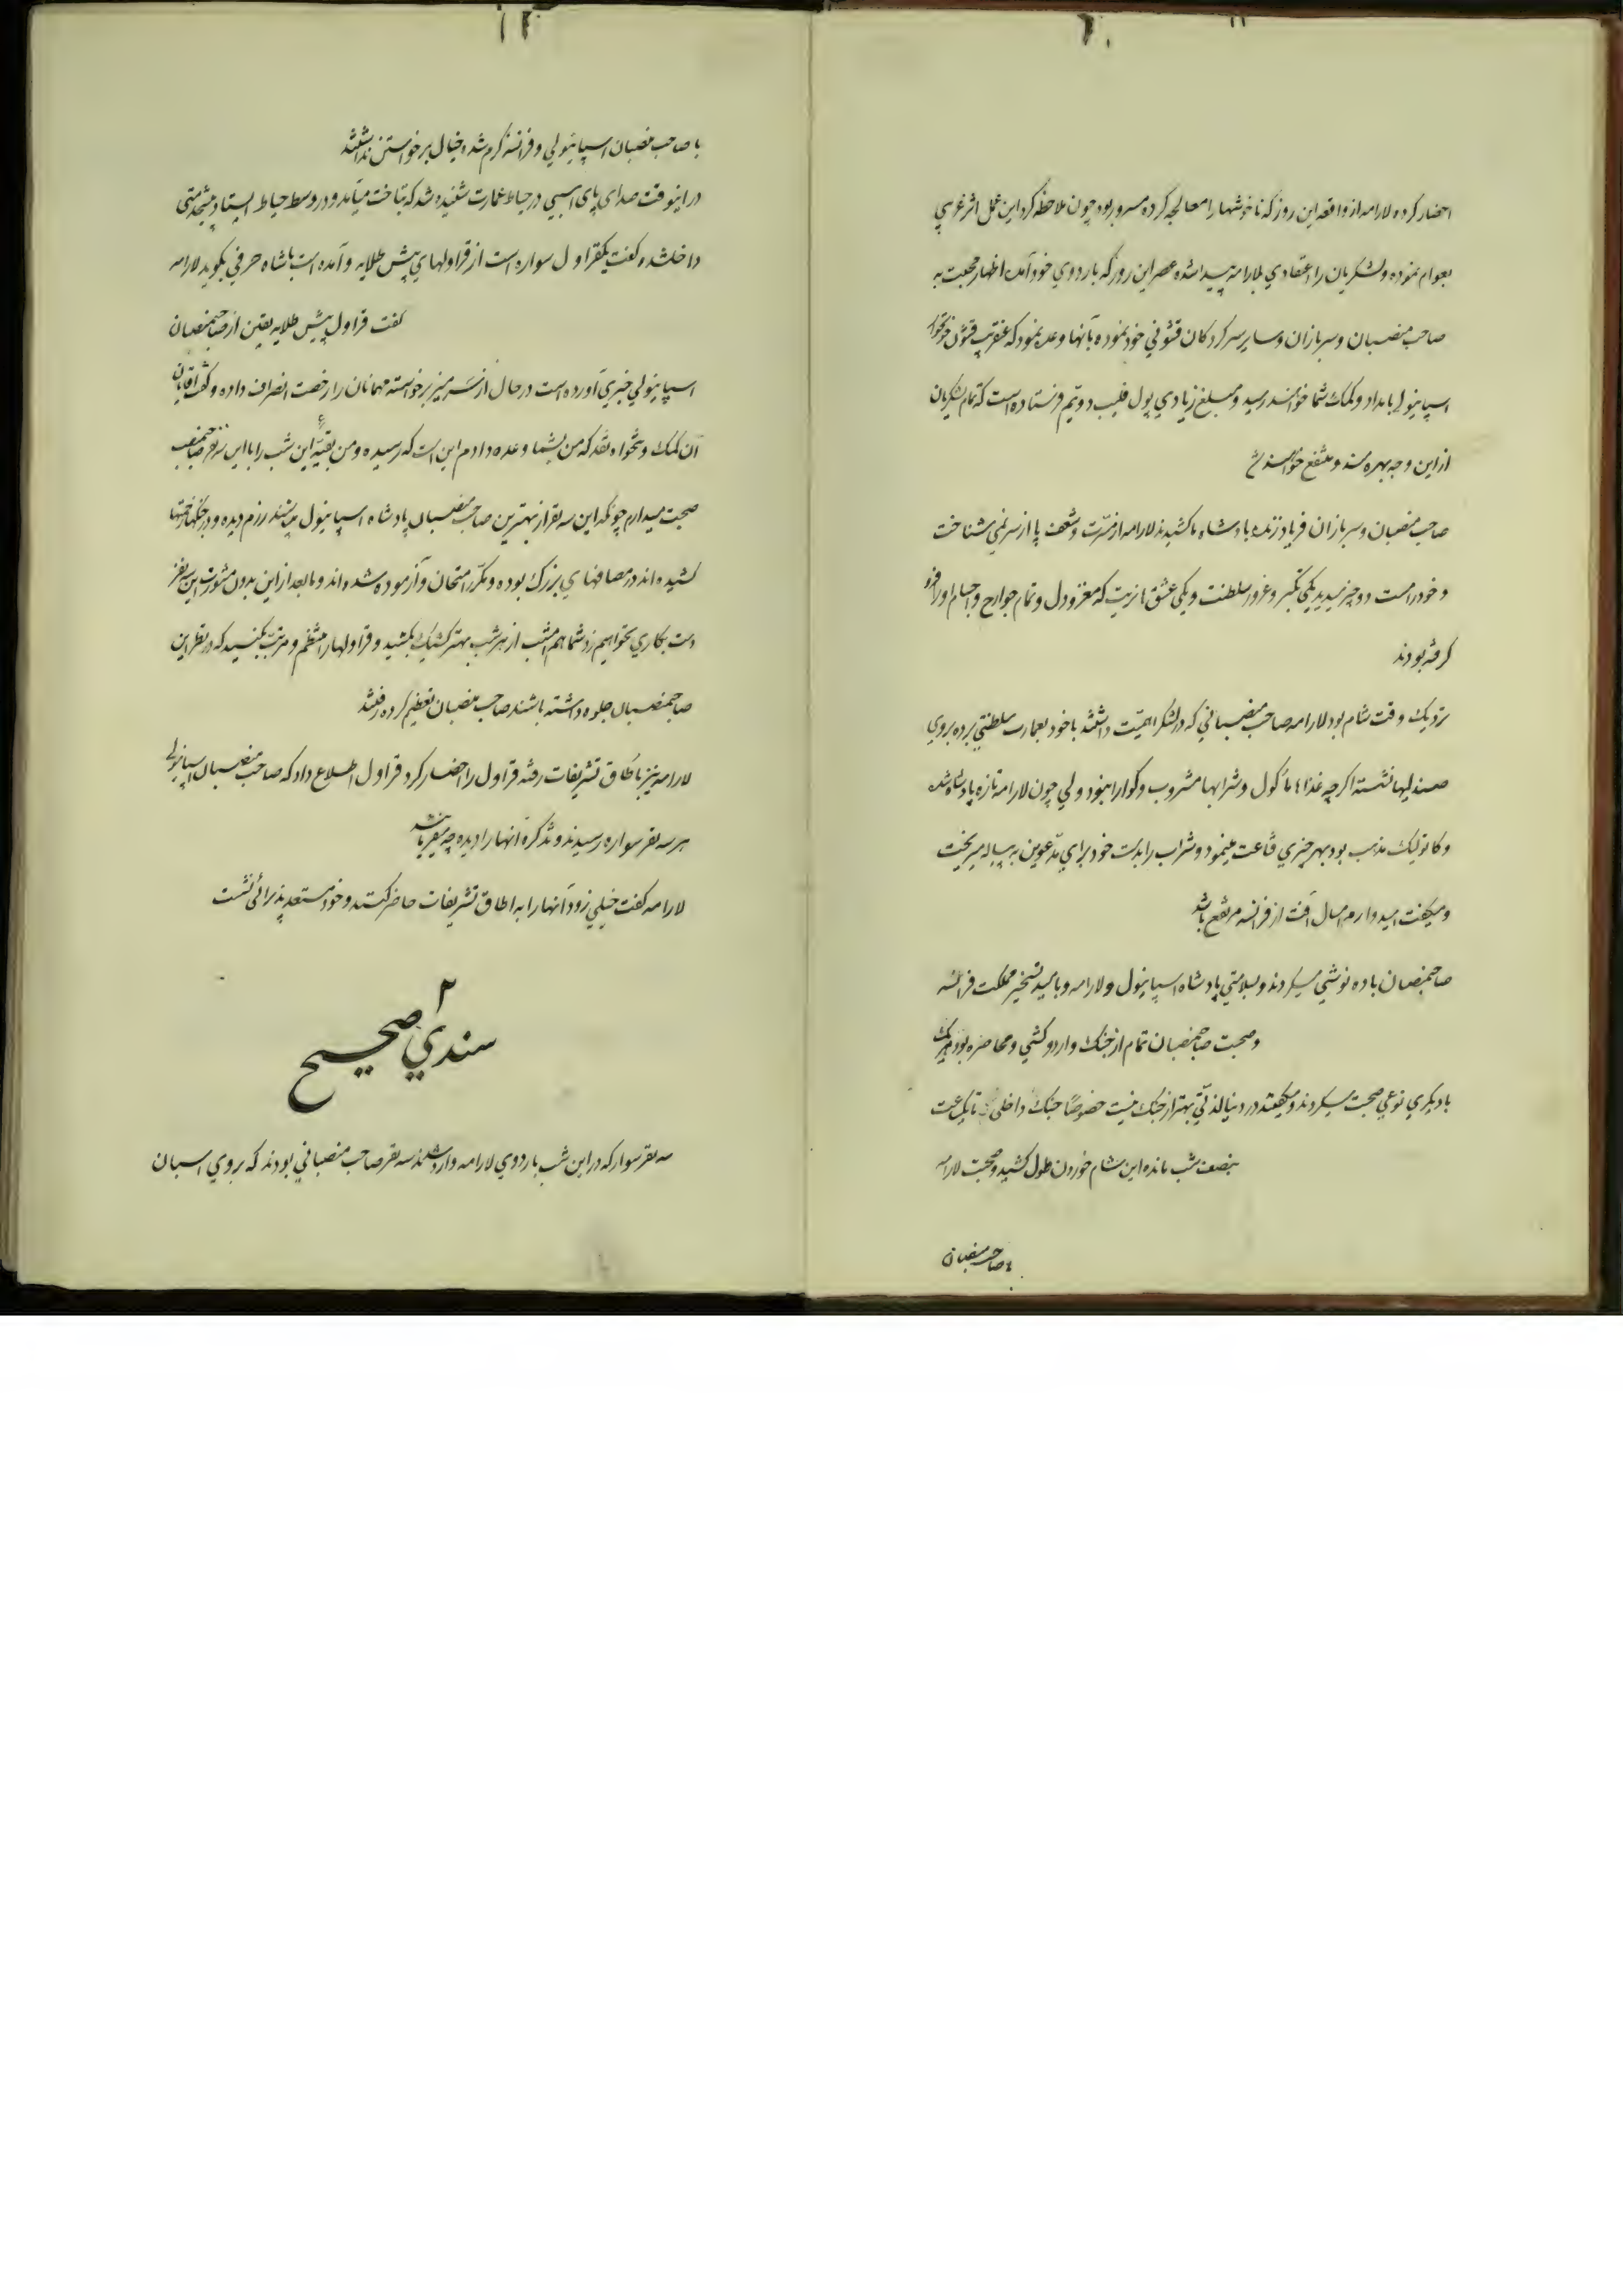 احضار کرده لارامه از واقعه این روز که ناخوشها را معالجه کرده مسرور بود چون ملاحظه کرد این عمل اثر غریبی
بعوام نموده و لشکریان را اعتقادی بلارامه پیدا شده عصر این روز که باردوی خود آمد اظهار محبت به
صاحب منصبان و سربازان و سایر سرکردکان قشونی خود نموده بآنها وعده نمود که عنقریب قشون خونخوار
اسپانیول بامداد و کمک شما خواهند رسید و مبلغ زیادی پول فلیپ دویم فرستاده است که تمام لشکریان
از این وجه بهره مند و منتفع خواهند شد
صاحب منصبان و سربازان فریاد زنده باد شاه ما کشیدند لارامه از مسرت و شعف پا از سر نمی شناخت
و خود را مست دو چیز میدید یکی تکبر و غرور سلطنت و یکی عشق که مغز و دل و تمام جوارح و اجسام او را فرو
کرفته بودند
نزدیک وقت شام بود لارامه صاحب منصبانی که در لشکر اهمیت داشتند با خود بعمارت سلطنتی برده بروی
صندلیها نشسته اکرچه غذاها مأکول و شرابها مشروب و کوارا نبود ولی چون لارامه تازه پادشاه شده
و کاتولیک مذهب بود بهر چیزی قناعت مینمود و شراب را بدست خود برای مدعوین به پیاله میریخت
و میکفت امیدوارم امسال آفت از فرانسه مرتفع باشد
صاحبمنصبان باده نوشی میکردند و بسلامتی پادشاه اسپانیول و لارامه و بامید تسخیر مملکت فرانسه
و صحبت صاحبمنصبان تمام از جنک و اردوکشی و محاصره بود هریک
با دیکری نوعی صحبت میکردند و میکفتند در دنیا لذتی بهتر از جنک نیست خصوصاً جنک داخلی تا یکساعت
بنصف شب مانده این شام خوردن طول کشید و صحبت لارامه
با صاحبمنصبان
با صاحب منصبان اسپانیولی و فرانسه کرم شده خیال برخواستن نداشتند
در اینوقت صدای پای اسبی در حیاط عمارت شنیده شد که بتاخت میآمد و در وسط حیاط ایستاد پیشخدمتی
داخلشده کفت یکقراول سواره است از قراولهای پیش طلایه و آمده است باشاه حرفی بکوید لارامه
کفت قراول پیش طلایه یقین از صاحبمنصبان
اسپانیولی خبری آورده است در حال از سر میز برخواسته مهمانان را رخصت انصراف داده و کفت آقایان
آن کمک و تنخواه نقد که من بشما وعده دادم این است که رسیده و من بقیه این شب را با این سه نفر صاحبمنصب
صحبت میدارم چونکه این سه نفر از بهترین صاحب منصبان پادشاه اسپانیول میباشند رزم دیده و در جنکها زحمتها
کشیده اند در مصافهای بزرک بوده و مکرر امتحان و آزموده شده اند و مابعد از این بدون مشورت این سه نفر
دست بکاری نخواهیم زد شما هم امشب از هر شب بهتر کشیک بکشید و قراولها را منظم و مرتب بکنید که در نظر این
صاحبمنصبان جلوه داشته باشند صاحب منصبان تعظیم کرده رفتند
لارامه نیز باطاق تشریفات رفته قراول را احضار کرد قراول اطلاع داد که صاحب منصبان اسپانیولی
هر سه نفر سواره رسیدند و تذکره آنها را دیده چه میفرمایند
لارامه کفت خیلی زود آنها را به اطاق تشریفات حاضر کنید و خود مستعد پذیرائی نشست
۲
سندی صحیح
سه نفر سوار که در این شب باردوی لارامه وارد شدند سه نفر صاحب منصبانی بودند که بروی اسبان